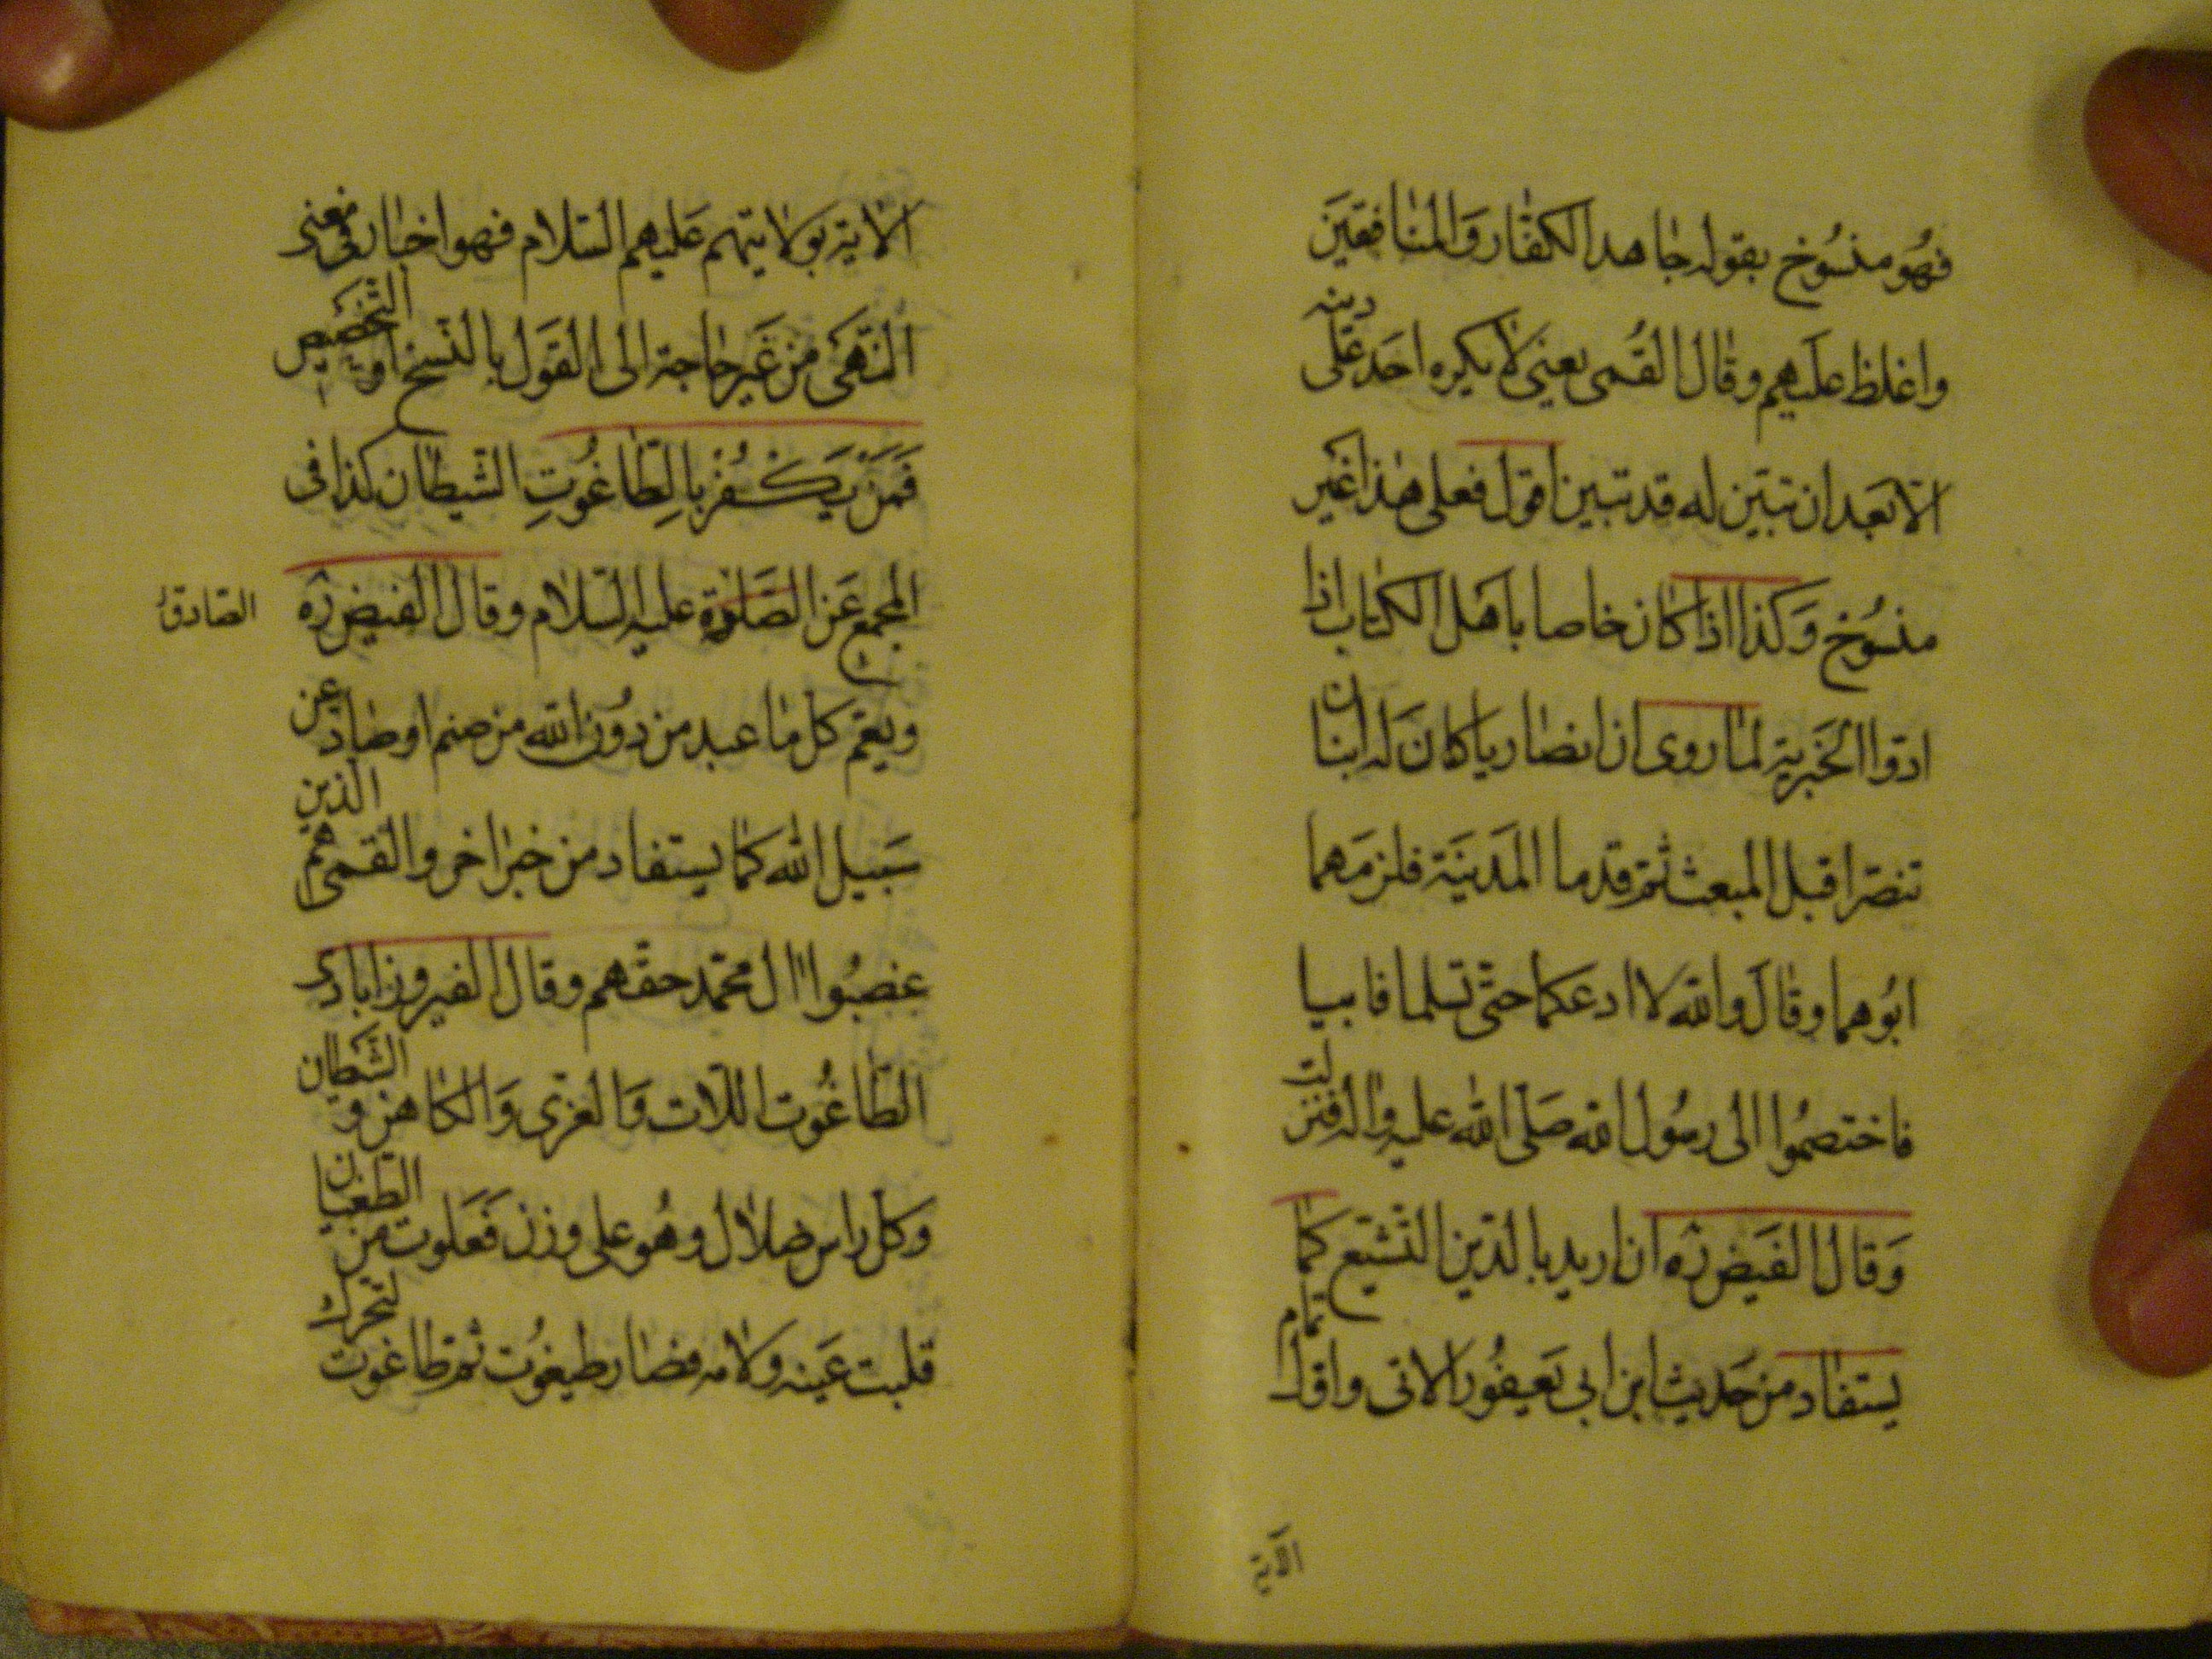 فهُو منسُوخ بقوله جاهد الكفّار وَالمنافقينَ
واغلظ علَيهم وقال القُمى يعني لا يكره احَد عَلى دينه
الّا بَعد ان تبيّن له قد تبين اقول فعلى هذا غير
منسُوخ وَكذا اذا كان خاصا باهل الكتاب اذا
ادّوا الخَبرية لما روى ان انصاريا كان لَه ابنان
تنصّرا قبل المبعث ثم قدما المَدينَة فلزمَهما
ابُوهما وقال والله لا ادعكما حتّى تسلما فابيا
فاختصمُوا الى رسُول الله صَلّى الله عليه واله فنزلت
وَقال الفَيض ره ان اريد بالدّين التشيّع كما
يستفاد من حَديث ابن ابي يَعيفُور الاتى واوّل تمام
الاية
الاية بولايتهم عَليهم السّلام فهو اخبار فى معنى
النّهَى من غَير حاجة الى القَول بالنّسخ او التخصيص
فَمَنْ يَكْفُرْ بِالطّاغُوتِ الشّيطان كذا فى
المجمع عَن الصَّلوة عليه السّلام وقال الفيض ره
الصّادق
ويعّم كل ما عبد من دُون الله من صنم او صادّ عن
سَبيل الله كما يستفاد من خبر اخر والقمى هم الذين
غصبُوا ال محمّد حقّهم وقال الفيروزابادى
الطّاغُوت اللّات وَالعزّى وَالكاهن و الشيطان
وكل راس ضلال وهُو على وزن فَعَلوت من الطّغيان
قلبت عَينه ولامه فصار طيغُوت ثم طاغوت لتحرك